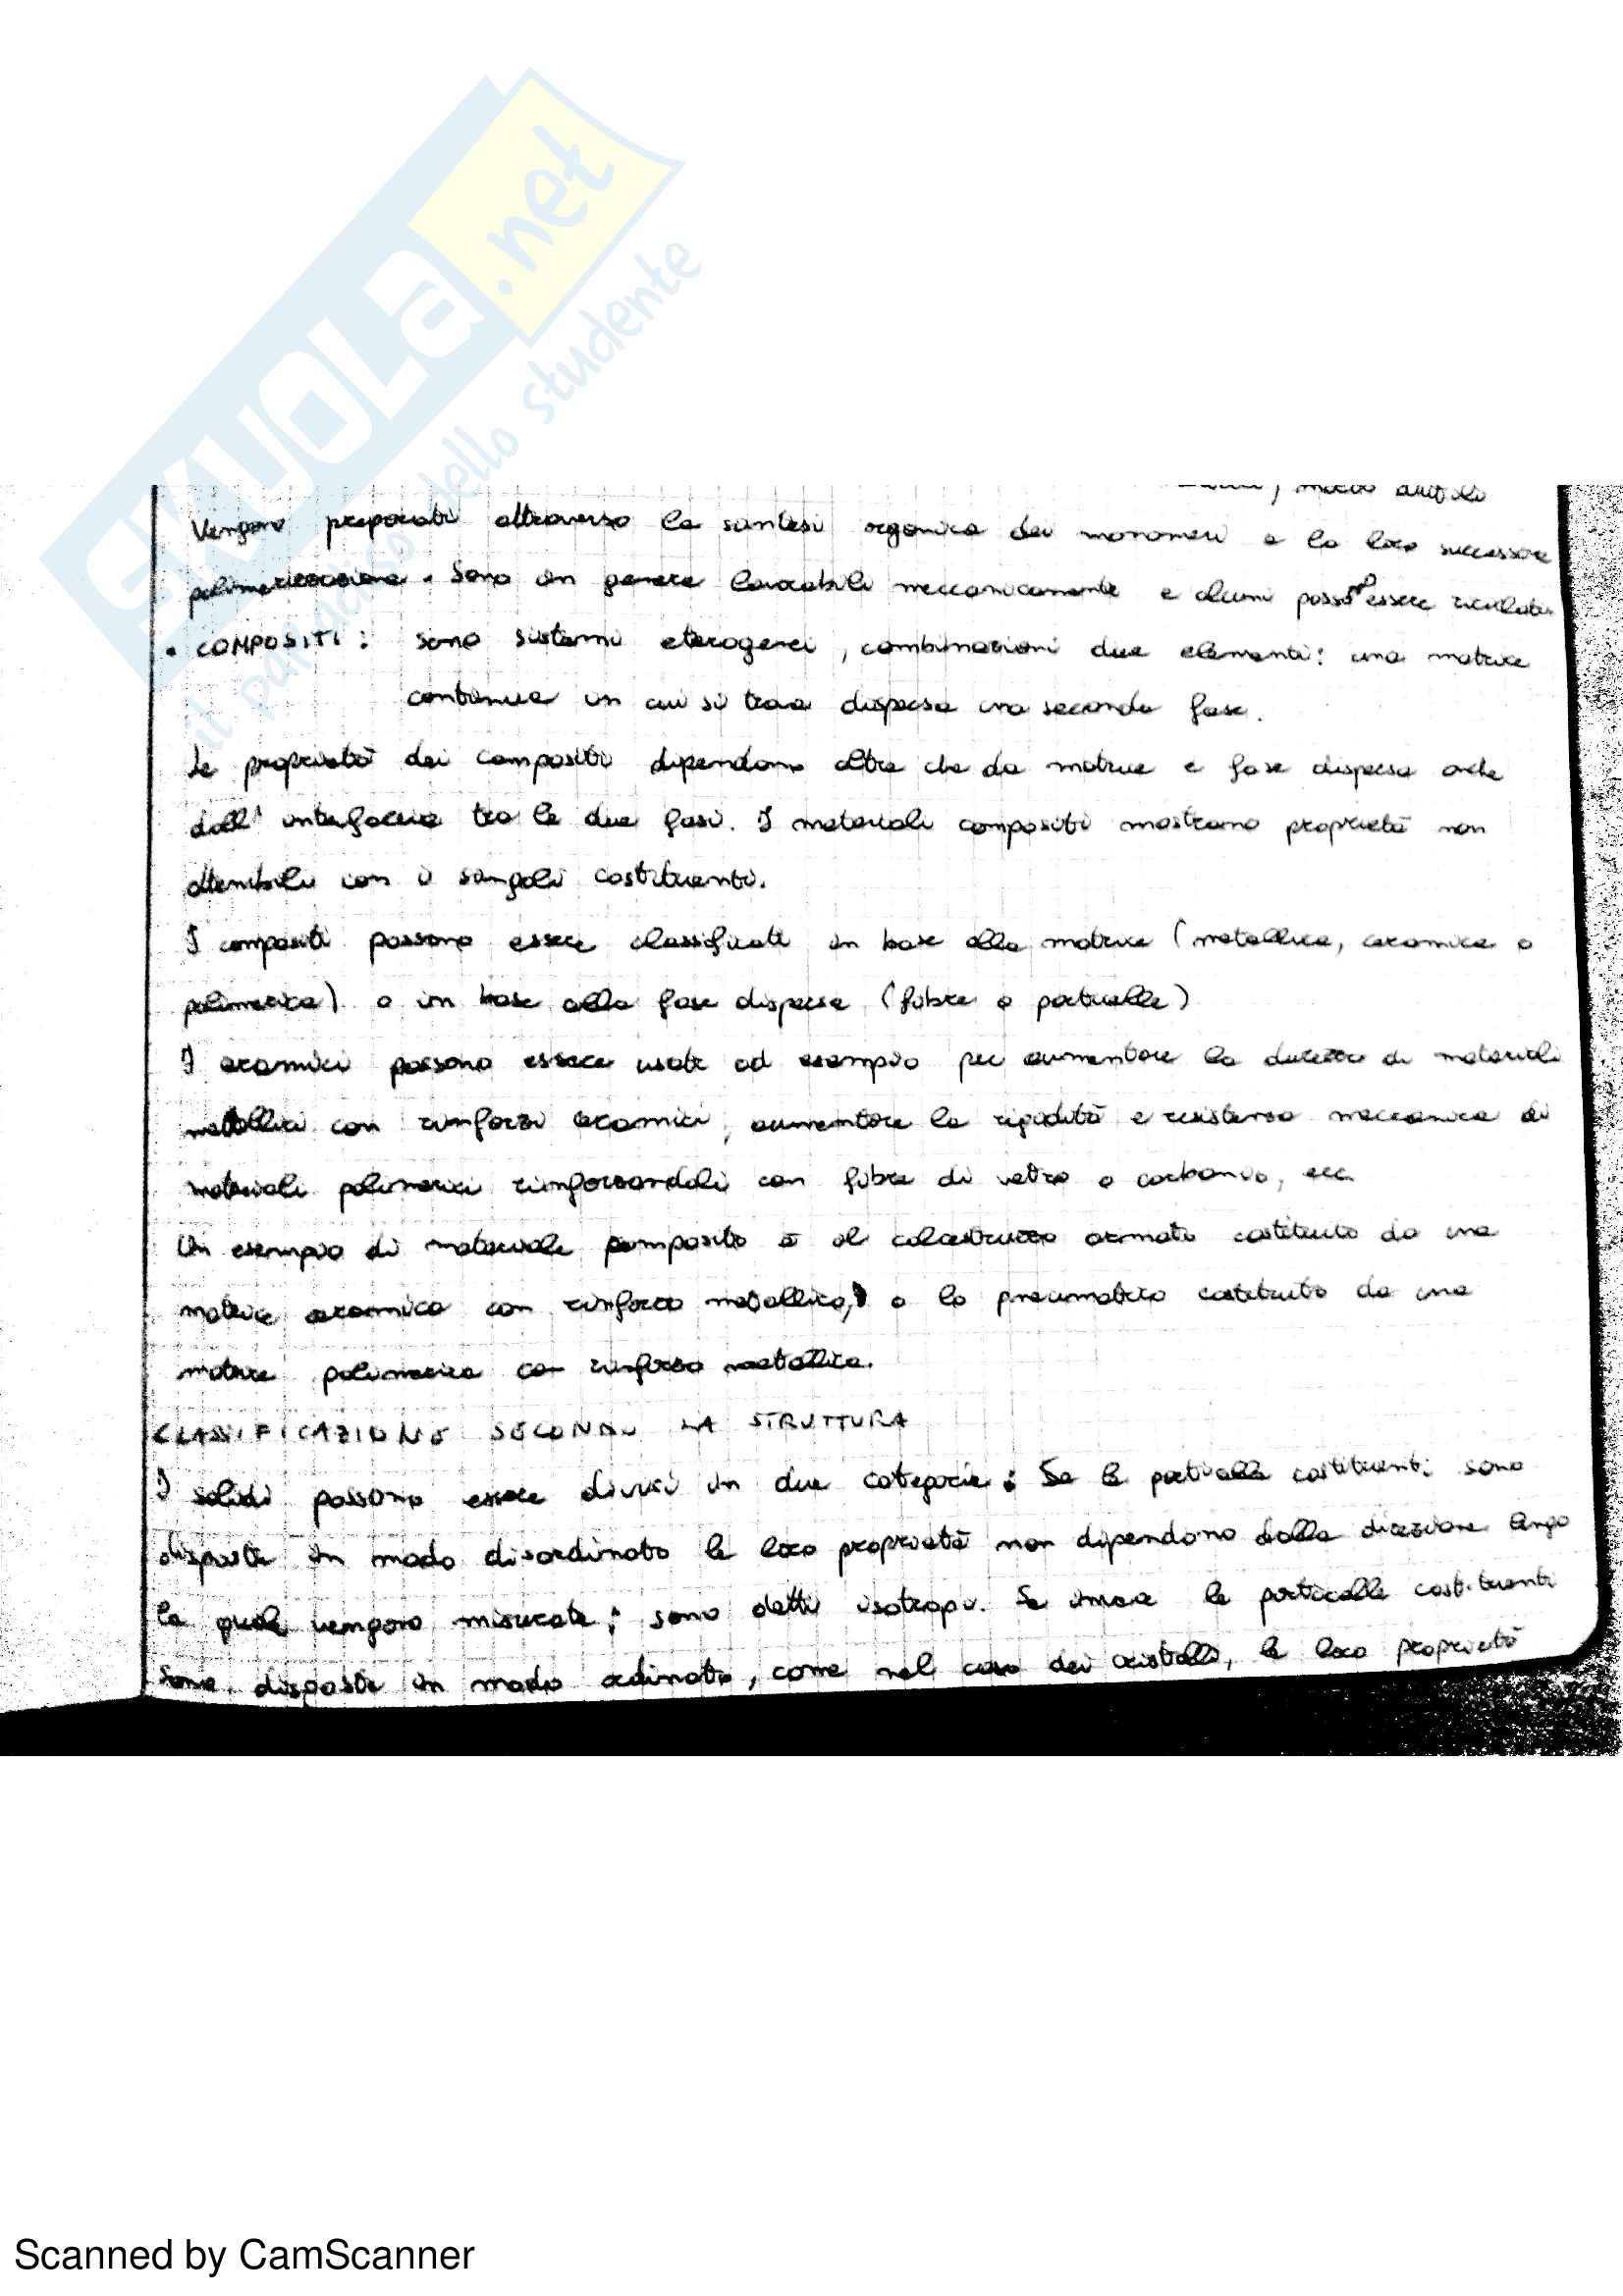 SKUOLA.net
il paradiso dello studente
Vengono preparati attraverso la sintesi organica dei monomeri e la loro successiva
polimerizzazione. Sono in genere lavorabili meccanicamente e alcuni possono essere riciclati
• COMPOSITI: sono sistemi eterogenei, combinazioni due elementi: una matrice
continua in cui si trova dispersa una seconda fase.
Le proprietà dei compositi dipendono oltre che da matrice e fase dispersa anche
dall'interfaccia tra le due fasi. I materiali compositi mostrano proprietà non
ottenibili con i singoli costituenti.
I compositi possono essere classificati in base alla matrice (metallica, ceramica o
polimerica) o in base alla fase dispersa (fibre o particelle)
I ceramici possono essere usati ad esempio per aumentare la durezza di materiali
metallici con rinforzi ceramici, aumentare la rigidità e resistenza meccanica di
materiali polimerici rinforzandoli con fibre di vetro o carbonio, ecc.
Un esempio di materiale composito è il calcestruzzo armato costituito da una
matrice ceramica con rinforzo metallico, o lo pneumatico costituito da una
matrice polimerica con rinforzo metallico.
CLASSIFICAZIONE SECONDO LA STRUTTURA
I solidi possono essere divisi in due categorie: Se le particelle costituenti sono
disposte in modo disordinato le loro proprietà non dipendono dalla direzione lungo
la quale vengono misurate; sono detti isotropi. Se invece le particelle costituenti
sono disposte in modo ordinato, come nel caso dei cristalli, le loro proprietà
Scanned by CamScanner